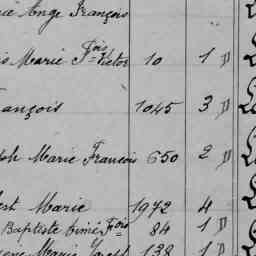 Ange François
Marie Fois Victor 10 1 D
ançois 1045 3 D
ph Marie Francois 650 2 D
est Marie 1972 4
Baptiste Aimé Fois 84 1 D
Marie Joseph 138 1 D